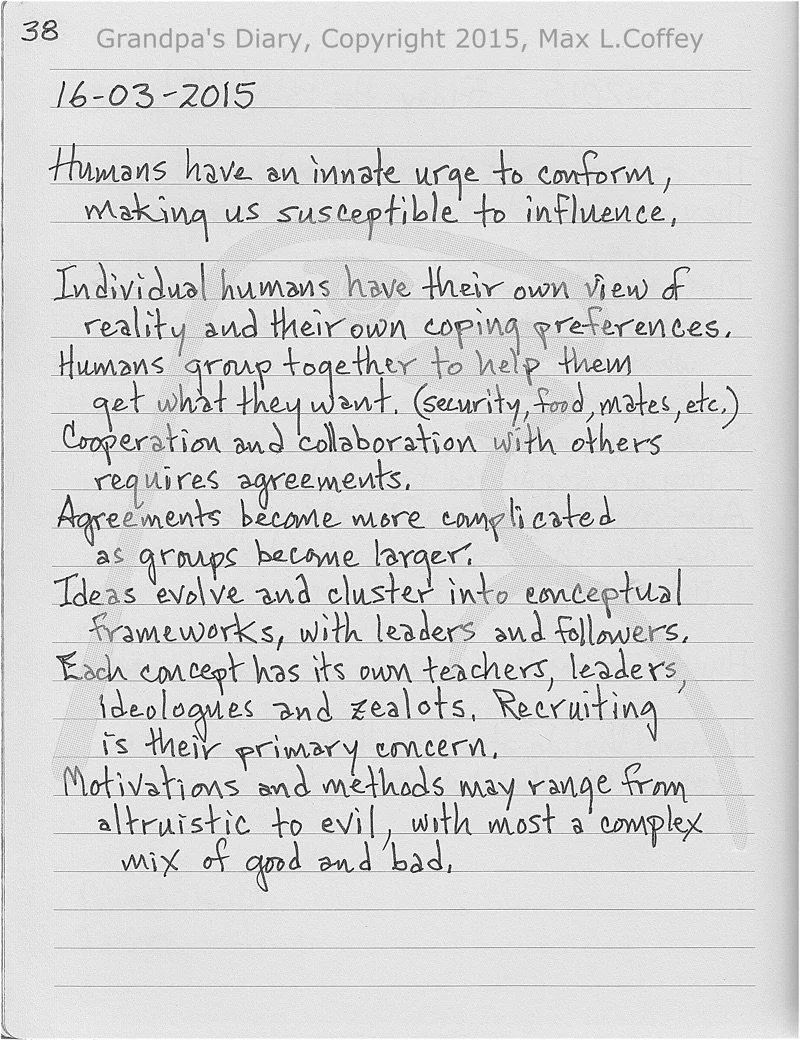 38
Grandpa's Diary, Copyright 2015, Max L.Coffey
16-03-2015
Humans have an innate urge to conform,
making us susceptible to influence.
Individual humans have their own view of
reality and their own coping preferences.
Humans group together to help them
get what they want. (security, food, mates, etc.)
Cooperation and collaboration with others
requires agreements.
Agreements become more complicated
as groups become larger.
Ideas evolve and cluster into conceptual
frameworks, with leaders and followers.
Each concept has its own teachers, leaders,
ideologues and zealots. Recruiting
is their primary concern.
Motivations and methods may range from
altruistic to evil, with most a complex
mix of good and bad.